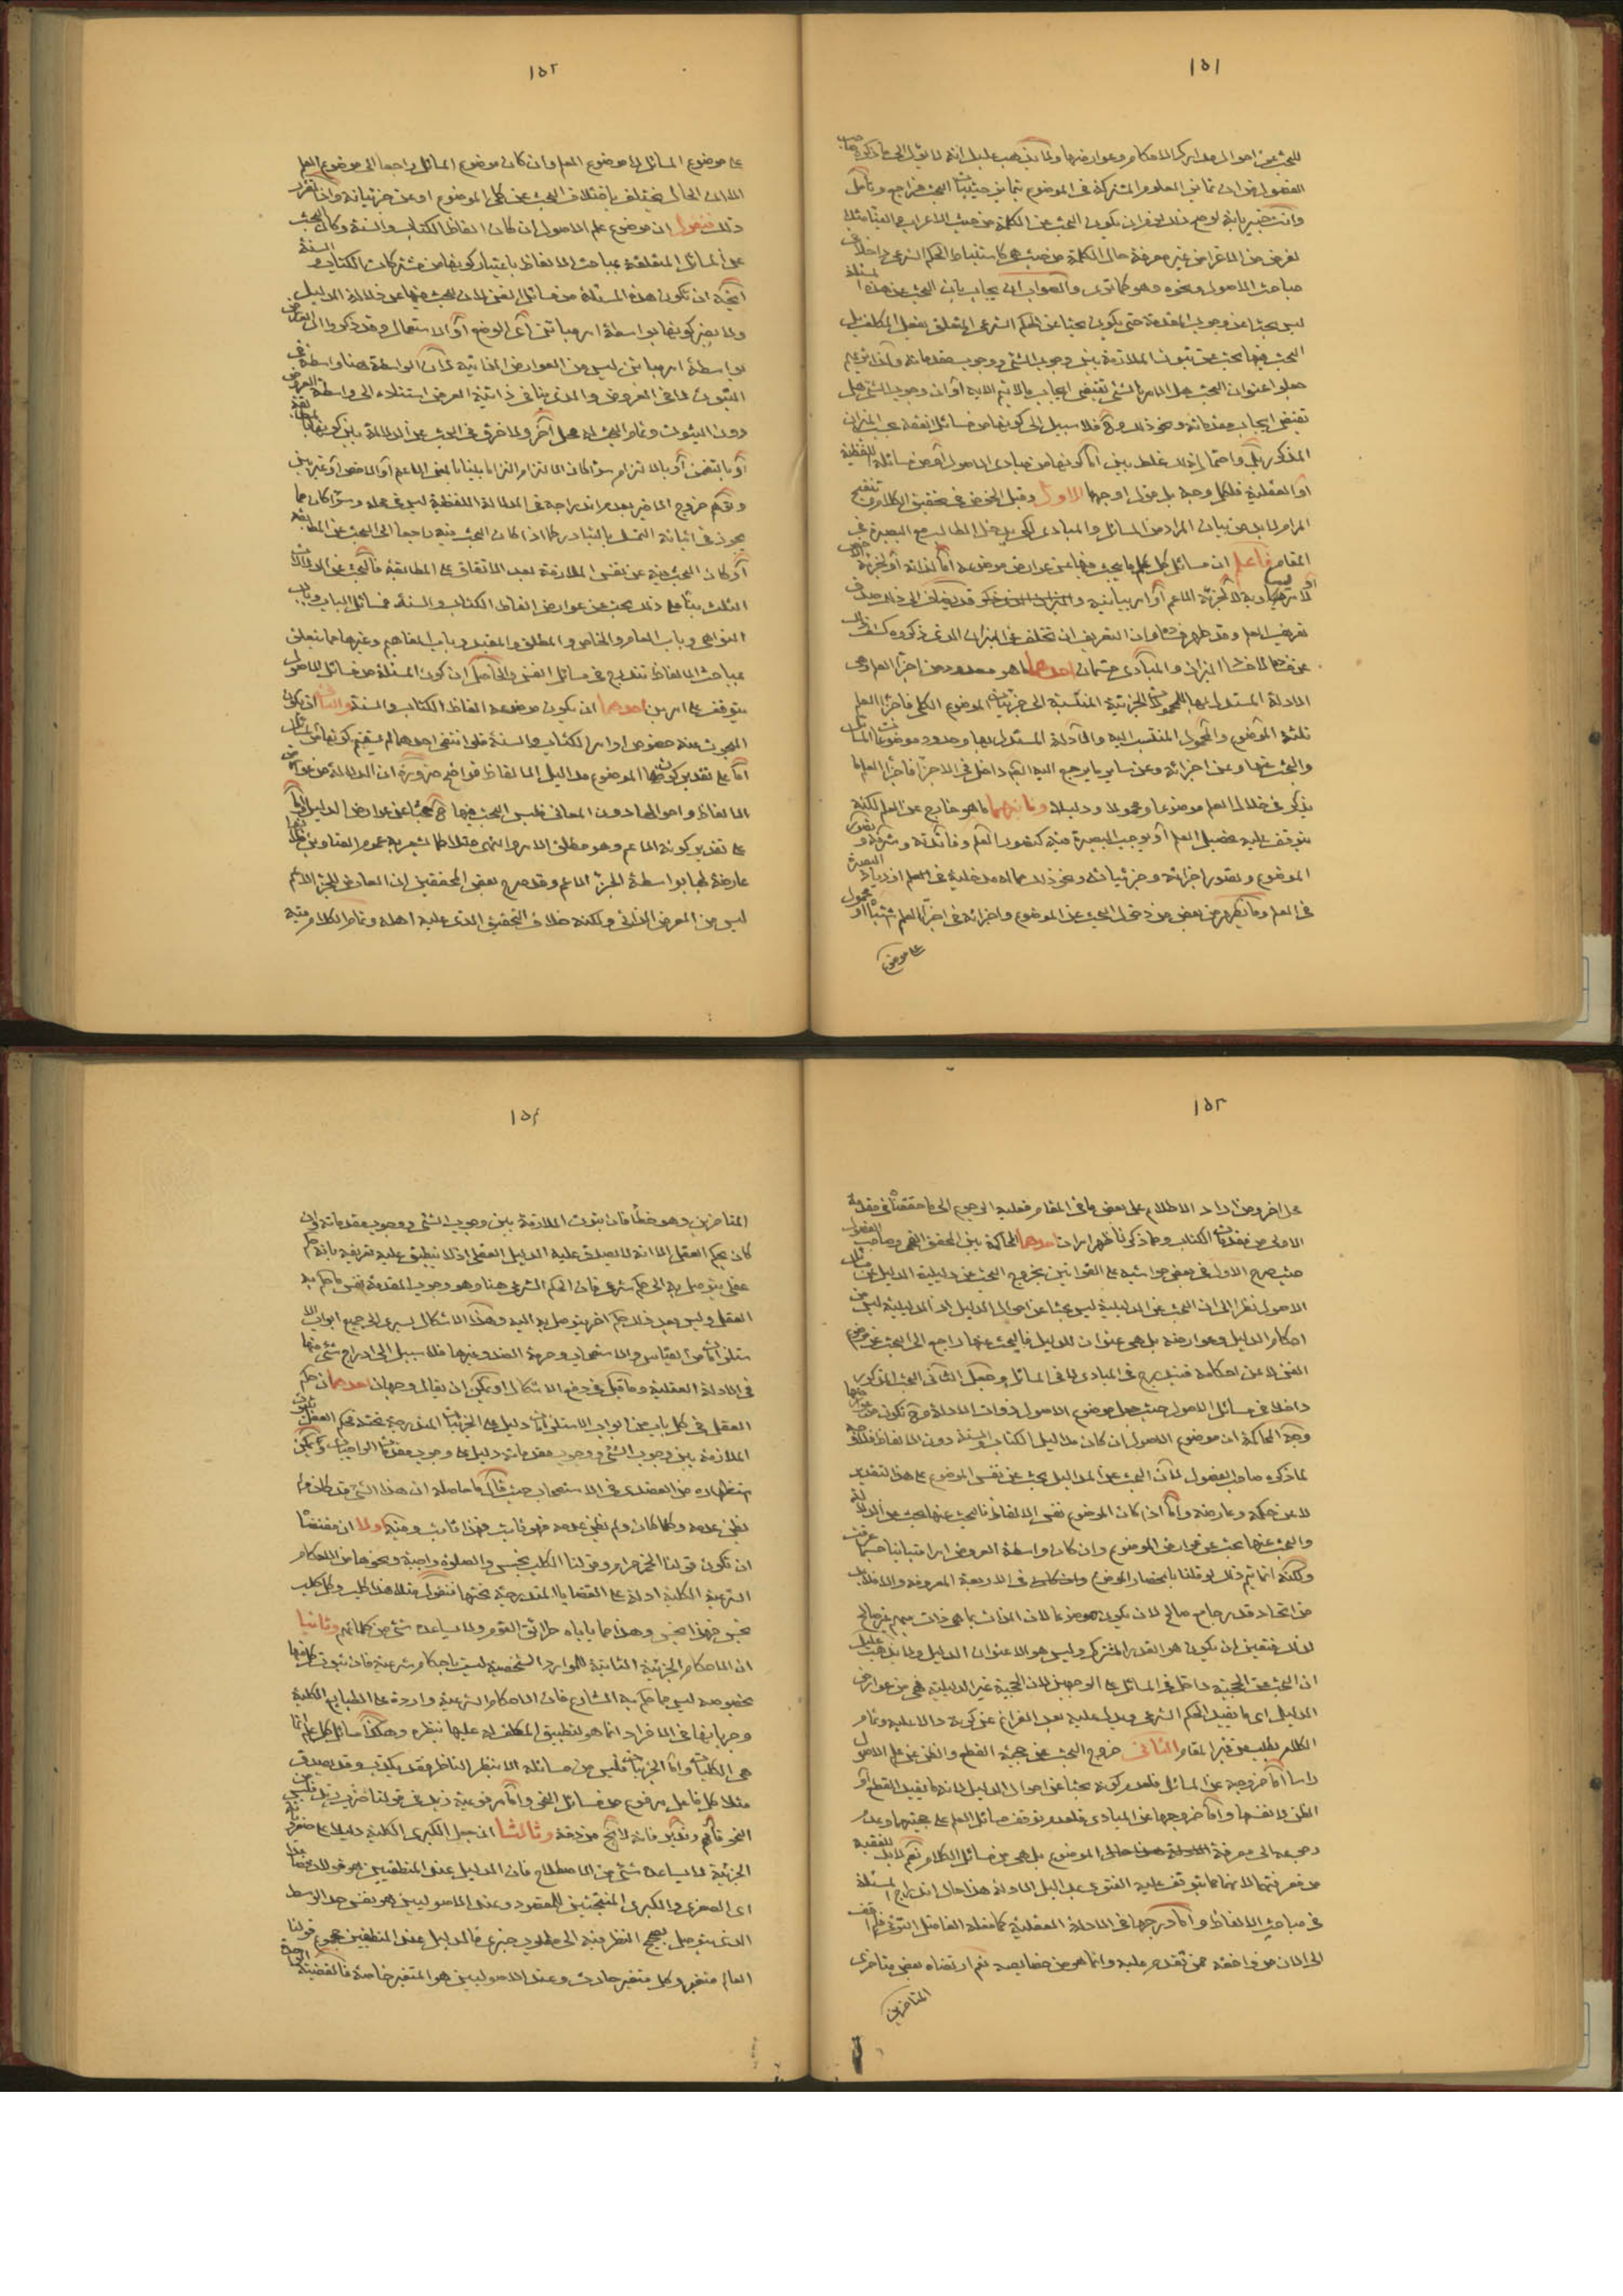 ١٥١
للبحث عن احوال مدارك الاحكام وعوارضها ولا يذهب عليك انه لا يؤل الى ما ذكره صاحب
الفصول من ان تمايز العلوم المشتركة في الموضوع بتمايز حيثيات البحث فراجع وتأمل
وانت خبير بانه لو صح ذلك لجاز ان يكون البحث عن الكلمة من حيث الاعراب والبناء مثلا
لغرض من الاغراض غير معرفة حال الكلمة من حيث هي كاستنباط الحكم الشرعي داخلا في
مباحث الاصول ونحوه وهو كما ترى والصواب ان يجاب بان البحث عن هذه المسئلة
ليس بحثا عن وجوب المقدمة حتى يكون بحثا عن الحكم الشرعي المتعلق بفعل المكلف بل
البحث فيها بحث عن ثبوت الملازمة بين وجوب الشئ ووجوب مقدماته ولذا تريهم
جعلوا عنوان البحث هل الامر بالشئ يقتضي ايجاب ما لا يتم الا به او ان وجوب الشئ هل
يقتضي ايجاب مقدماته ونحو ذلك وح فلا سبيل الى كونها من مسائل الفقه بحسب الميزان
المذكور بل واحتمال ذلك غلط بين اما كونها من مبادى الاصول او من مسائله اللفظية
او العقلية فلكل وجه بل من اوجهها الاول وقبل الخوض في تحقيق الكلام وتنقيح
المرام لا بد من بيان المراد من المسائل والمبادى لكي يدخل الطالب مع البصيرة في
المقام فاعلم ان مسائل كل علم ما يبحث فيها عن عوارض موضوعه اما لذاته او لجزئه
تعريف العلم وقد ظهر فسا وان التعريف ان تخلف عن الميزان الذي ذكروه كشف ذلك
عن فساد الميزان والمبادى قسمان احدهما ما هو معدود من اجزاء العلم وهي
الادلة المستدل بها المحمولات الجزئية المنتسبة الى جزئيات الموضوع الكلي فاجزاء العلم
ثلثة الموضوع والمحمول المنتسب اليه والادلة المستدل بها وحدود موضوعات المسائل
والبحث عنها وعن اجزائه وعن ساير ما يرجع اليه التئم داخل في الاجزاء فاجزاء العلم ما
يذكر في خلال العلم موضوعا ومحمولا ودليلا وثانيهما ما هو خارج عن العلم لكنه
يتوقف عليه تحصيل العلم او يوجب البصيرة فيه كتصور العلم وفائدته وشرفه وتصور
الموضوع وتصور اجزائه وجزئياته ونحو ذلك مما له مدخلية في العلم او زيادة البصيرة
في العلم وما يظهر من بعض من دخول البحث عن الموضوع واجزائه في اجزاء العلم اشتباه او محمول
على موضوع
١٥٢
على موضوع المسائل لا موضوع العلم وان كان موضوع المسائل راجعا الى موضوع العلم
الا ان الحال يختلف باختلاف البحث عن كلي الموضوع او عن جزئياته واذا تقرر
ذلك فنقول ان موضوع علم الاصول ان كان الفاظ الكتاب والسنة وكان البحث
عن المسائل المتعلقة بمباحث الالفاظ باعتبار كونها من مشتركات الكتاب والسنة
اتجه ان تكون هذه المسئلة من مسائل الفن لان البحث فيها عن دلالة الدليل
ولا يضر كونها بواسطة امر مباين اعني الوضع او الاستعمال وقد ذكروا ان العارض
بواسطة امر مباين ليس من العوارض الذاتية لان الواسطة هنا واسطة في
الثبوت لا في العروض والذي ينافي ذاتية العرض استناده الى واسطة العروض
دون الثبوت وتمام البحث له محل آخر ولا فرق في البحث عن الدلالة بين كونها بالمطابقة
او بالتضمن او بالالتزام سواء كان الالتزام التزاما بينا بالمعنى الاعم او الاخص او غير بين
وتوهم خروج الاخير بعدم اندراجه في الدلالة اللفظية ليس في محله وسواء كان مما
يجوز في اثباته التمسك بالتبادر كما اذا كان البحث فيه راجعا الى البحث عن المطابقة
او كان البحث فيه عن نفس الملازمة بعد الاتفاق على المطابقة فالبحث عن الدلالات
الثلث بتمامها في ذلك بحث عن عوارض الفاظ الكتاب والسنة فمسائل الباب وباب
النواهى وباب العام والخاص والمطلق والمقيد وباب المفاهيم وغيرها مما يتعلق
بمباحث الالفاظ تندرج في مسائل الفن والحاصل ان كون المسئلة من مسائل الاصول
يتوقف على امرين احدهما ان يكون موضوعه الفاظ الكتاب والسنة والثاني ان يكون
المبحوث عنه خصوص اوامر الكتاب والسنة فلو انتفى احدهما لم يستقم كونها من المسائل
اما على تقدير كون الموضوع مداليل الالفاظ فواضح ضرورة ان الدلالة من عوارض
الالفاظ واحوالها دون المعاني فليس البحث فيها ح بحثا عن عوارض الدليل واما
على تقدير كونه الاعم وهو مطلق الامر والنهى مثلا كما يشعر به عموم العناوين فلانها
عارضة لها بواسطة الجزء الاعم وقد صرح بعض المحققين ان العارض للجزء الاعم
ليس من العرض الذاتي ولكنه خلاف التحقيق الذي عليه اهله وتمام الكلام فيه
١٥٣
محل اخر ومن اراد الاطلاع على بعض ما في المقام فعليه الرجوع الى ما حققناه في مقدمة
الاولى من مقدمات الكتاب ومما ذكرنا ظهر امران احدهما المحاكمة بين المحقق القمي وصاحب الفصول
حيث صرح الاول في بعض حواشيه على القوانين بخروج البحث عن دليلية الدليل عن مسائل
الاصول نظرا الى ان البحث عن الدليلية ليس بحثا عن احوال الدليل اذ الدليلية ليس من
احكام الدليل وعوارضه بل هي عنوان للدليل فالبحث عنها راجع الى البحث عن موضوع
الفن لا عن احكامه فيندرج في المبادى لا في المسائل وجعل الثاني البحث المذكور
داخلا في مسائل الاصول حيث جعل موضوع الاصول ذوات الادلة وح تكون من عوارضها
وجه المحاكمة ان موضوع الاصول ان كان مداليل الكتاب والسنة دون الالفاظ فلا وجه
لما ذكره صاحب الفصول لان البحث عن المداليل بحث عن نفس الموضوع على هذا التقدير
لا عن حكمه وعارضه واما اذا كان الموضوع نفس الالفاظ فالبحث عنها بحث عن الدلالة
والبحث عنها بحث عن عوارض الموضوع وان كان واسطة العروض امرا مباينا حسبما عرفت
ولكنه انما يتم ذلك لو قلنا بانحصار الموضوع في الاربعة المعروفة والا فلا بد
من اتحاد قدر جامع صالح لان يكون موضوعا لان الذات بما هي ذات مبهم غير صالح
لذلك فتعين ان يكون هو القدر المشترك وليس هو الا عنوان الدليل ولا يذهب عليك
ان البحث عن الحجية داخل في المسائل على الوجهين لان الحجية غير الدليلية فهي من عوارض
الدليل اى ما يفيد الحكم الشرعي ويدل عليه بعد الفراغ عن كونه دالا عليه وتمام
الكلام يطلب من غير المقام الثاني خروج البحث عن حجية القطع والظن عن علم الاصول
راسا اما خروجه عن المسائل فلعدم كونه بحثا عن احوال الدليل لانه ما يفيد القطع او
الظن لا نفسهما واما خروجها عن المبادى فلعدم توقف مسائل العلم على حجيتهما وعدم
رجوعه الى معرفة الموضوع بل هي من مسائل الكلام نعم لا بد للفقيه
من معرفتها لانها مما يتوقف عليه الفتوى عن الادلة هذا حال اندراج المسئلة
في مباحث الالفاظ واما درجها في الادلة العقلية كما فعله الفاضل التوني فلم اقف
الى الان من وافقه ممن تقدم عليه وانما هو من خصايصه نعم ارتضاه بعض متاخرى
المتاخرين
١٥٤
المتاخرين وهو خطأ فان ثبوت الملازمة بين وجوب الشئ ووجوب مقدماته وان
كان بحكم العقل الا انه لا يصدق عليه الدليل العقلي اذ لا ينطبق عليه تعريفه بانه حكم
عقلي يتوصل به الى حكم شرعي فان الحكم الشرعي هنا وهو وجوب المقدمة نفس ما حكم به
العقل وليس بعد ذلك حكم اخر يتوصل به اليه وهذا الاشكال يسرى الى جميع ابواب
الاستلزامات من القياس والاستصحاب وحرمة الضد وغيرها فلا سبيل الى ادراج شئ منها
في الادلة العقلية وما قيل في دفع الاشكال او يمكن ان يقال وجهان احدهما ان حكم
العقل في كل باب من ابواب الاستلزامات دليل على الجزئيات المندرجة تحته فحكم العقل بثبوت
الملازمة بين وجوب الشئ ووجوب مقدماته دليل على وجوب مقدمات الواجبات ويمكن
استظهاره من العضدى في الاستصحاب حيث قال ما حاصله ان هذا الشئ قد كان ولم
يظن عدمه وكلما كان ولم يظن عدمه فهو ثابت فهذا ثابت وفيه اولا ان مقتضاه
ان تكون قولنا الخمر حرام وقولنا الكلب نجس والصلوة واجبة ونحوها من الاحكام
الشرعية الكلية ادلة على القضايا المندرجة تحتها فنقول مثلا هذا كلب وكل كلب
نجس فهذا نجس وهذا مما ياباه طرائق القوم ولا يساعده شئ من كلماتهم وثانيا
ان الاحكام الجزئية الثابتة للموارد الشخصية ليست باحكام شرعية فان ثبوت الحكم فيها
بخصوصه ليس مما حكم به الشارع فان الاحكام الشرعية واردة على الطبايع الكلية
وجريانها في الافراد انما هو لتطبيق المكلف له عليها بنظره وهكذا مسائل كل علم انما
هي الكليات واما الجزئيات فليس من مسائله الا بنظر الناظر فقد يكذب وقد يصدق
مثلا كل فاعل مرفوع من مسائل النحو واما مرفوعية زيد في قولنا ضرب زيد فليس من
النحو فافهم وتدبر فانه لا يخ من دقة وثالثا ان جعل الكبرى الكلية دليلا على صغرياته
الجزئية لا يساعده شئ من الاصطلاح فان الدليل عند المنطقيين هو قولان فصاعدا
اى الصغرى والكبرى المنتجتين للمقصود وعند الاصوليين هو نفس حد الوسط
الذي يتوصل بصحيح النظر فيه الى مطلوب خبرى فالدليل عند المنطقيين مجموع قولنا
العالم متغير وكل متغير حادث وعند الاصوليين هو المتغير خاصة فالقضية الواحدة